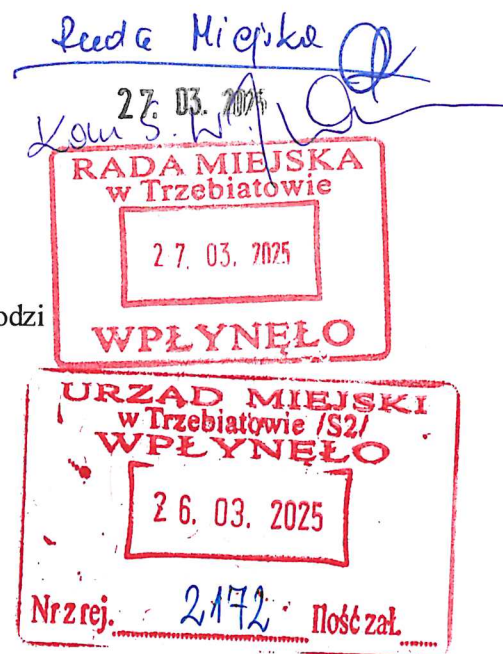 Rada Miejska
27. 03. 2025
Kom S. W.
RADA MIEJSKA
w Trzebiatowie
27. 03. 2025
WPŁYNĘŁO
odzi
URZĄD MIEJSKI
w Trzebiatowie /S2/
WPŁYNĘŁO
26. 03. 2025
Nr z rej. 2172 Ilość zał.